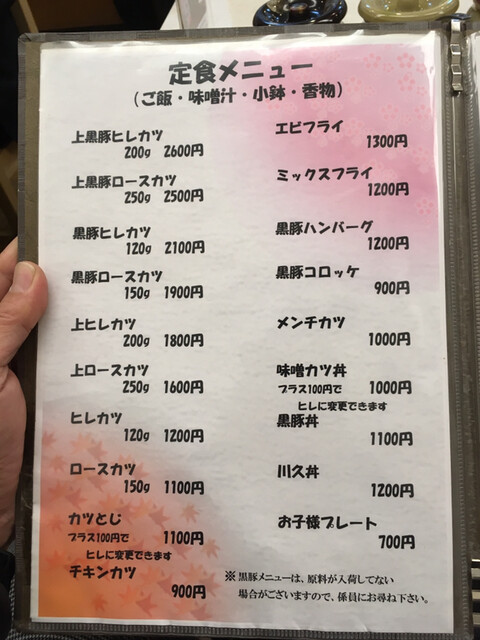 定食メニュー
(ご飯・味噌汁・小鉢・香物)
上黒豚ヒレカツ
200g 2600円
上黒豚ロースカツ
250g 2500円
黒豚ヒレカツ
120g 2100円
黒豚ロースカツ
150g 1900円
上ヒレカツ
200g 1800円
上ロースカツ
250g 1600円
ヒレカツ
120g 1200円
ロースカツ
150g 1100円
カツとじ
プラス100円で 1100円
ヒレに変更できます
チキンカツ
900円
エビフライ
1300円
ミックスフライ
1200円
黒豚ハンバーグ
1200円
黒豚コロッケ
900円
メンチカツ
1000円
味噌カツ丼
プラス100円で 1000円
ヒレに変更できます
黒豚丼
1100円
川久丼
1200円
お子様プレート
700円
※黒豚メニューは、原料が入荷してない
場合がございますので、係員にお尋ね下さい。